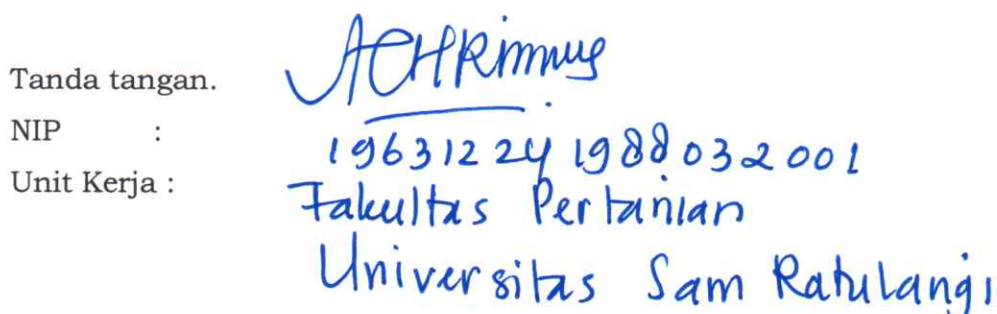 Tanda tangan.
NIP :
196312241988032001
Unit Kerja :
Fakultas Pertanian
Universitas Sam Ratulangi